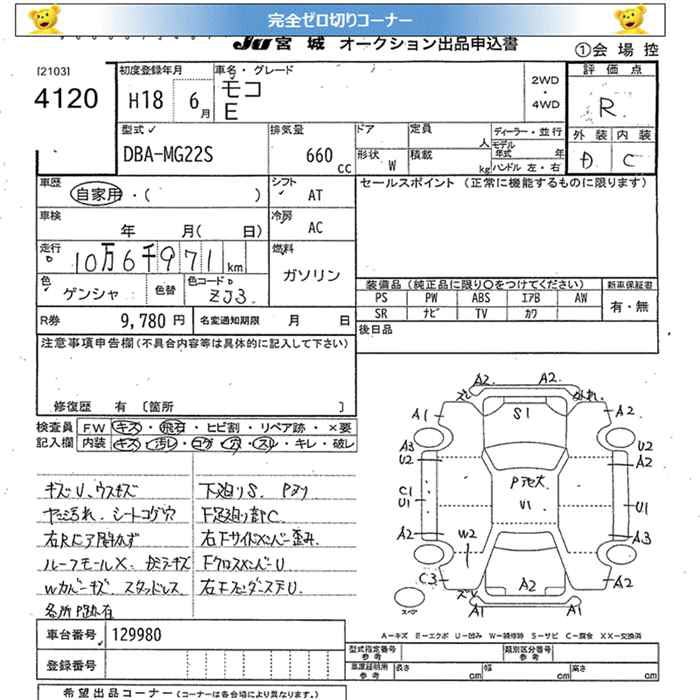 完全ゼロ切りコーナー
JU 宮城 オークション出品申込書
①会場控
[2103]
4120
初度登録年月
H18 6月
車名・グレード
モコ
E
2WD
・
4WD
評価点
R
外装 内装
D C
型式
DBA-MG22S
排気量
660 cc
ドア
定員 人
形状 W
積載 kg
ディーラー・並行
モデル年式 年
ハンドル 左・右
車歴
自家用・( )
シフト
AT
セールスポイント (正常に機能するものに限ります)
車検
年 月( 日)
冷房
AC
走行
10万6千971 km
燃料
ガソリン
色
ゲンシャ
色替
色コード
ZJ3
装備品 (純正品に限り〇をつけてください)
新車保証書
PS PW ABS エアB AW
有・無
SR ナビ TV カワ
R券 9,780 円
名変通知期限 月 日
後日品
注意事項申告欄(不具合内容等は具体的に記入して下さい)
修復歴 有 〔箇所 〕
検査員
記入欄
FW キズ・飛石・ヒビ割・リペア跡・×要
内装 キズ・汚レ・コゲ・穴・スレ・キレ・破レ
キズU、ウスキズ
ヤニ汚れ、シートコゲ穴
右Rドア開かず
ルーフモールX、ガラスキズ
Wカバーキズ スタッドレス
各所P跡有
下廻りS、Pヌリ
F足廻り部C
右Fサイドメンバー歪み
FクロスメンバーU
右FフェンダーステU
A2 A2
ズレ
A1
S1
A2
A3
U2
U2
A2
C1
U1
Pデキ大
U1
U1
A2
A3
W2
C3
A2
A2
ズレ
A1
A1
スペア
車台番号 129980
登録番号
A-キズ E-エクボ U-凹み W-補修跡 S-サビ C-腐食 XX-交換済
型式指定番号 参考
類別区分番号 参考
車庫証明用 参考
長さ cm
幅 cm
高さ cm
希望出品コーナー (コーナーは各会場により異なります。)